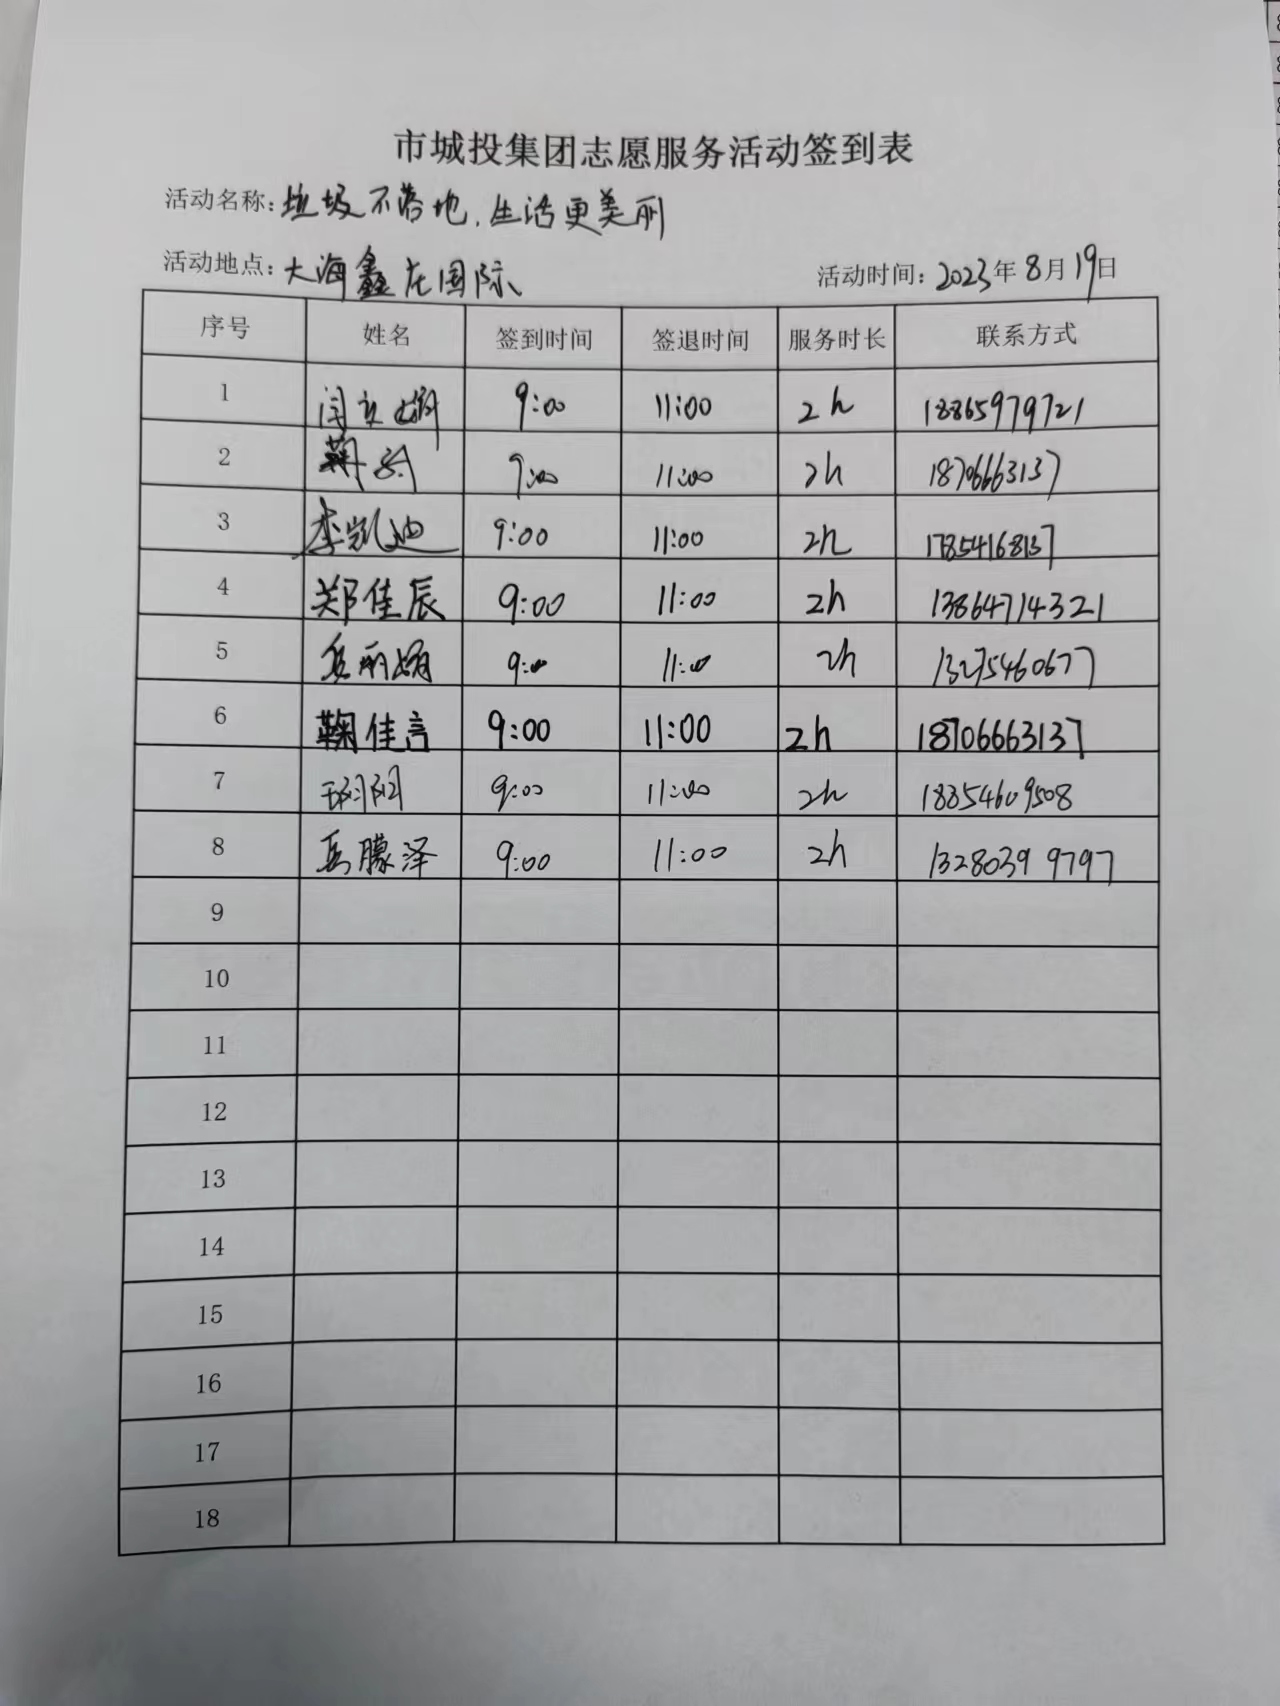 市城投集团志愿服务活动签到表
活动名称:垃圾不落地,生活更美丽
活动地点:大海鑫庄国际 活动时间:2023年8月19日
序号 姓名 签到时间 签退时间 服务时长 联系方式
1 闫文娟 9:00 11:00 2h 18865979721
2 鞠 9:00 11:00 2h 18706663137
3 李凯迪 9:00 11:00 2h 17854168137
4 郑佳辰 9:00 11:00 2h 13864714321
5 岳丽娟 9:00 11:00 2h 13275460677
6 鞠佳言 9:00 11:00 2h 18706663137
7 9:00 11:00 2h 18854609508
8 岳朦泽 9:00 11:00 2h 13280399797
9
10
11
12
13
14
15
16
17
18